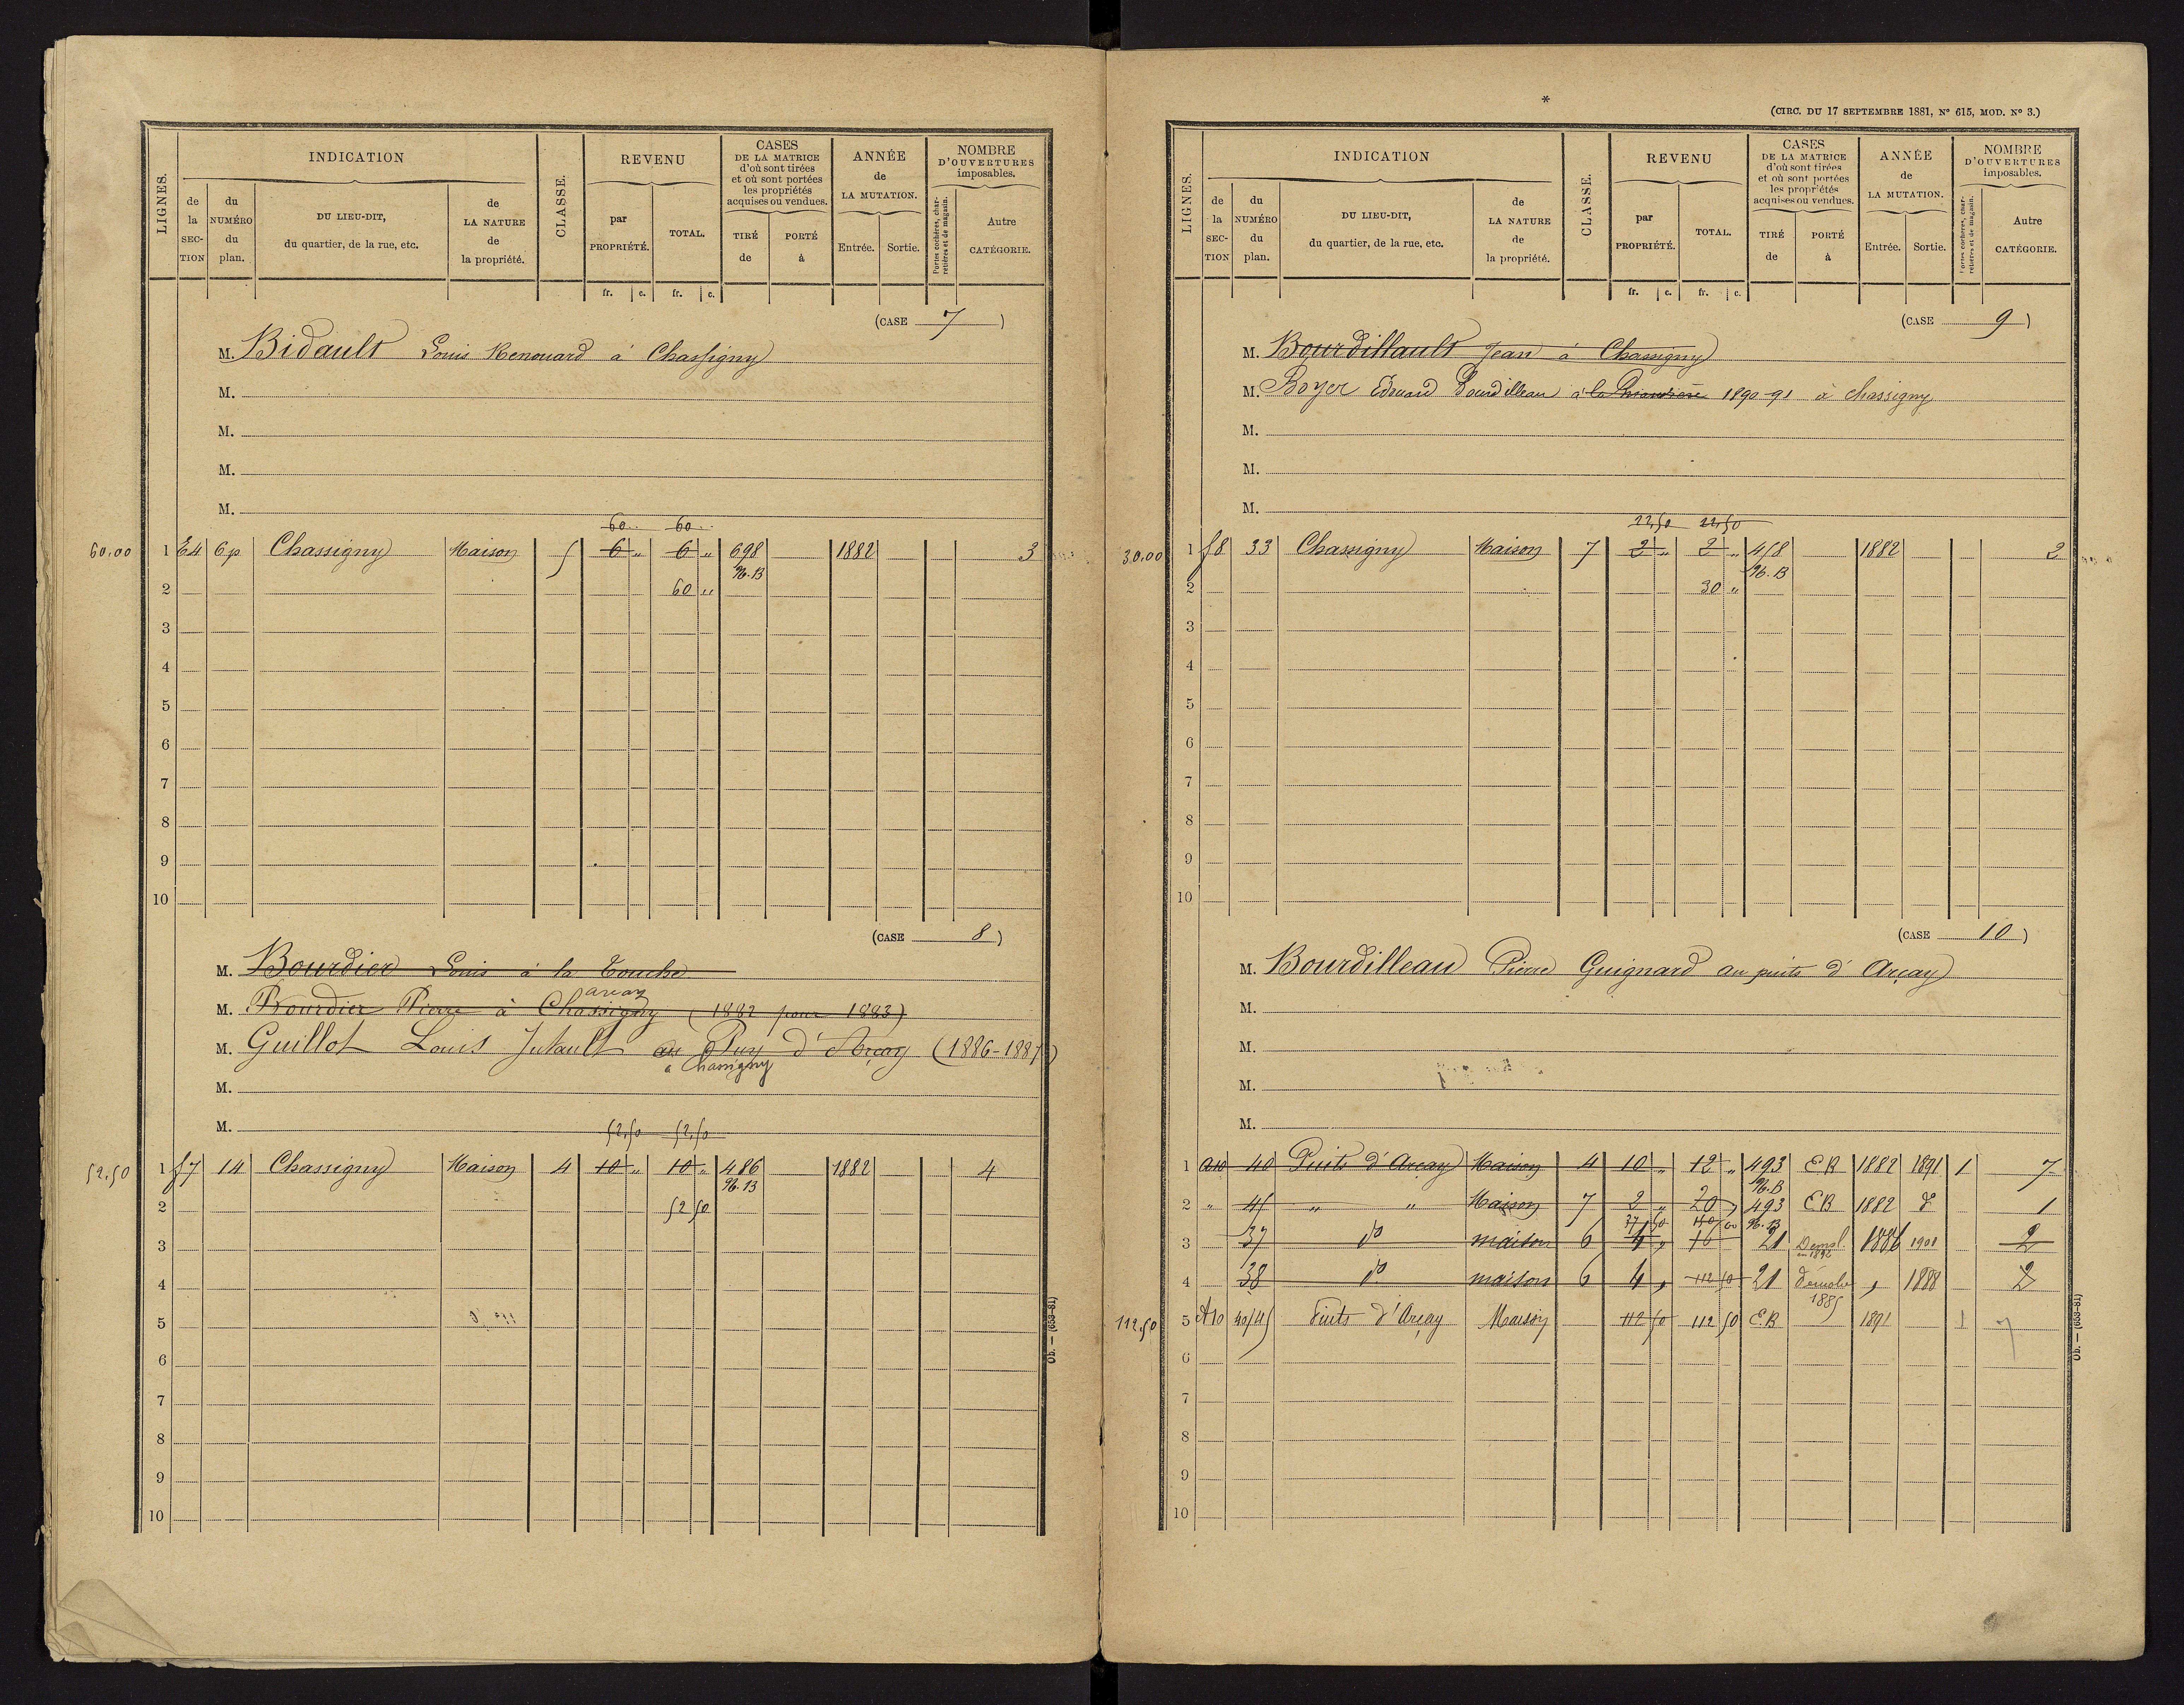 LIGNES.
INDICATION
de la SECTION
du NUMÉRO du plan.
DU LIEU-DIT, du quartier, de la rue, etc.
de LA NATURE de la propriété.
CLASSE.
REVENU
par PROPRIÉTÉ.
TOTAL.
fr. c. fr. c.
CASES DE LA MATRICE d'où sont tirées et où sont portées les propriétés acquises ou vendues.
TIRÉ de
PORTÉ à
ANNÉE de LA MUTATION.
Entrée. Sortie.
NOMBRE D'OUVERTURES imposables.
Portes cochères, charretières et de magasin.
Autre CATÉGORIE.
(CASE 7)
M. Bidault Louis Renouard à Chassigny
M.
M.
M.
M.
60 60
60.00 1 E4 6p Chassigny Maison 5 6 " 6 " 698 1882 3
96.B
2 60 "
3
4
5
6
7
8
9
10
(CASE 8)
M. Bourdier Louis à la Touche
arcay
M. Bourdier Pierre à Chassigny (1882 pour 1883)
M. Guillot Louis Jutault au Puy d'Arcay (1886-1887)
à Chassigny
M.
M.
52,50 52,50
52,50 1 f7 14 Chassigny Maison 4 10 " 10 " 486 1882 4
96.B
2 52 50
3
4
5
6
7
8
9
10
Ob. — (653-81)
*
(CIRC. DU 17 SEPTEMBRE 1881, N° 615, MOD. N° 3.)
LIGNES.
INDICATION
de la SECTION
du NUMÉRO du plan.
DU LIEU-DIT, du quartier, de la rue, etc.
de LA NATURE de la propriété.
CLASSE.
REVENU
par PROPRIÉTÉ.
TOTAL.
fr. c. fr. c.
CASES DE LA MATRICE d'où sont tirées et où sont portées les propriétés acquises ou vendues.
TIRÉ de
PORTÉ à
ANNÉE de LA MUTATION.
Entrée. Sortie.
NOMBRE D'OUVERTURES imposables.
Portes cochères, charretières et de magasin.
Autre CATÉGORIE.
(CASE 9)
M. Bourdillault Jean à Chassigny
M. Boyer Edouard Bourdilleau à la 1890-91 à chassigny
M.
M.
M.
22,50 22,50
30.00 1 f8 33 Chassigny Maison 7 2 " 2 " 458 1882 2
96.B
2 30 "
3
4
5
6
7
8
9
10
(CASE 10)
M. Bourdilleau Pierre Guignard au puits d'Arçay
M.
M.
M.
M.
1 a10 40 Puits d'Arçay Maison 4 10 " 12 " 493 EB 1882 1891 1 7
96.B
2 " 45 " " Maison 7 2 " 20 " 493 EB 1882 d° 1
37 50 96.B
3 37 d° maison 6 4 " 16 21 Demol. en 1892 1886 1901 2
4 38 d° maison 6 4 " 112 50 21 démolie 1885 " 1888 2
112,50 5 A10 40/45 Puits d'Arçay Maison 112 50 112 50 EB 1891 1 7
6
7
8
9
10
Ob. — (653-81)